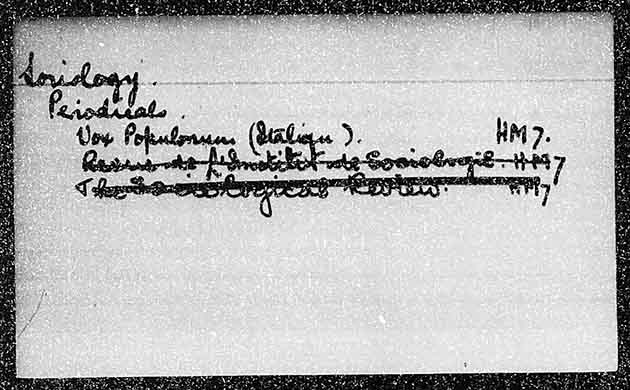 Sociology.
Periodicals.
Vox Populorum (Italian). HM7.
Revue de l'Institut de Sociologie. HM7
The Sociological Review. HM7